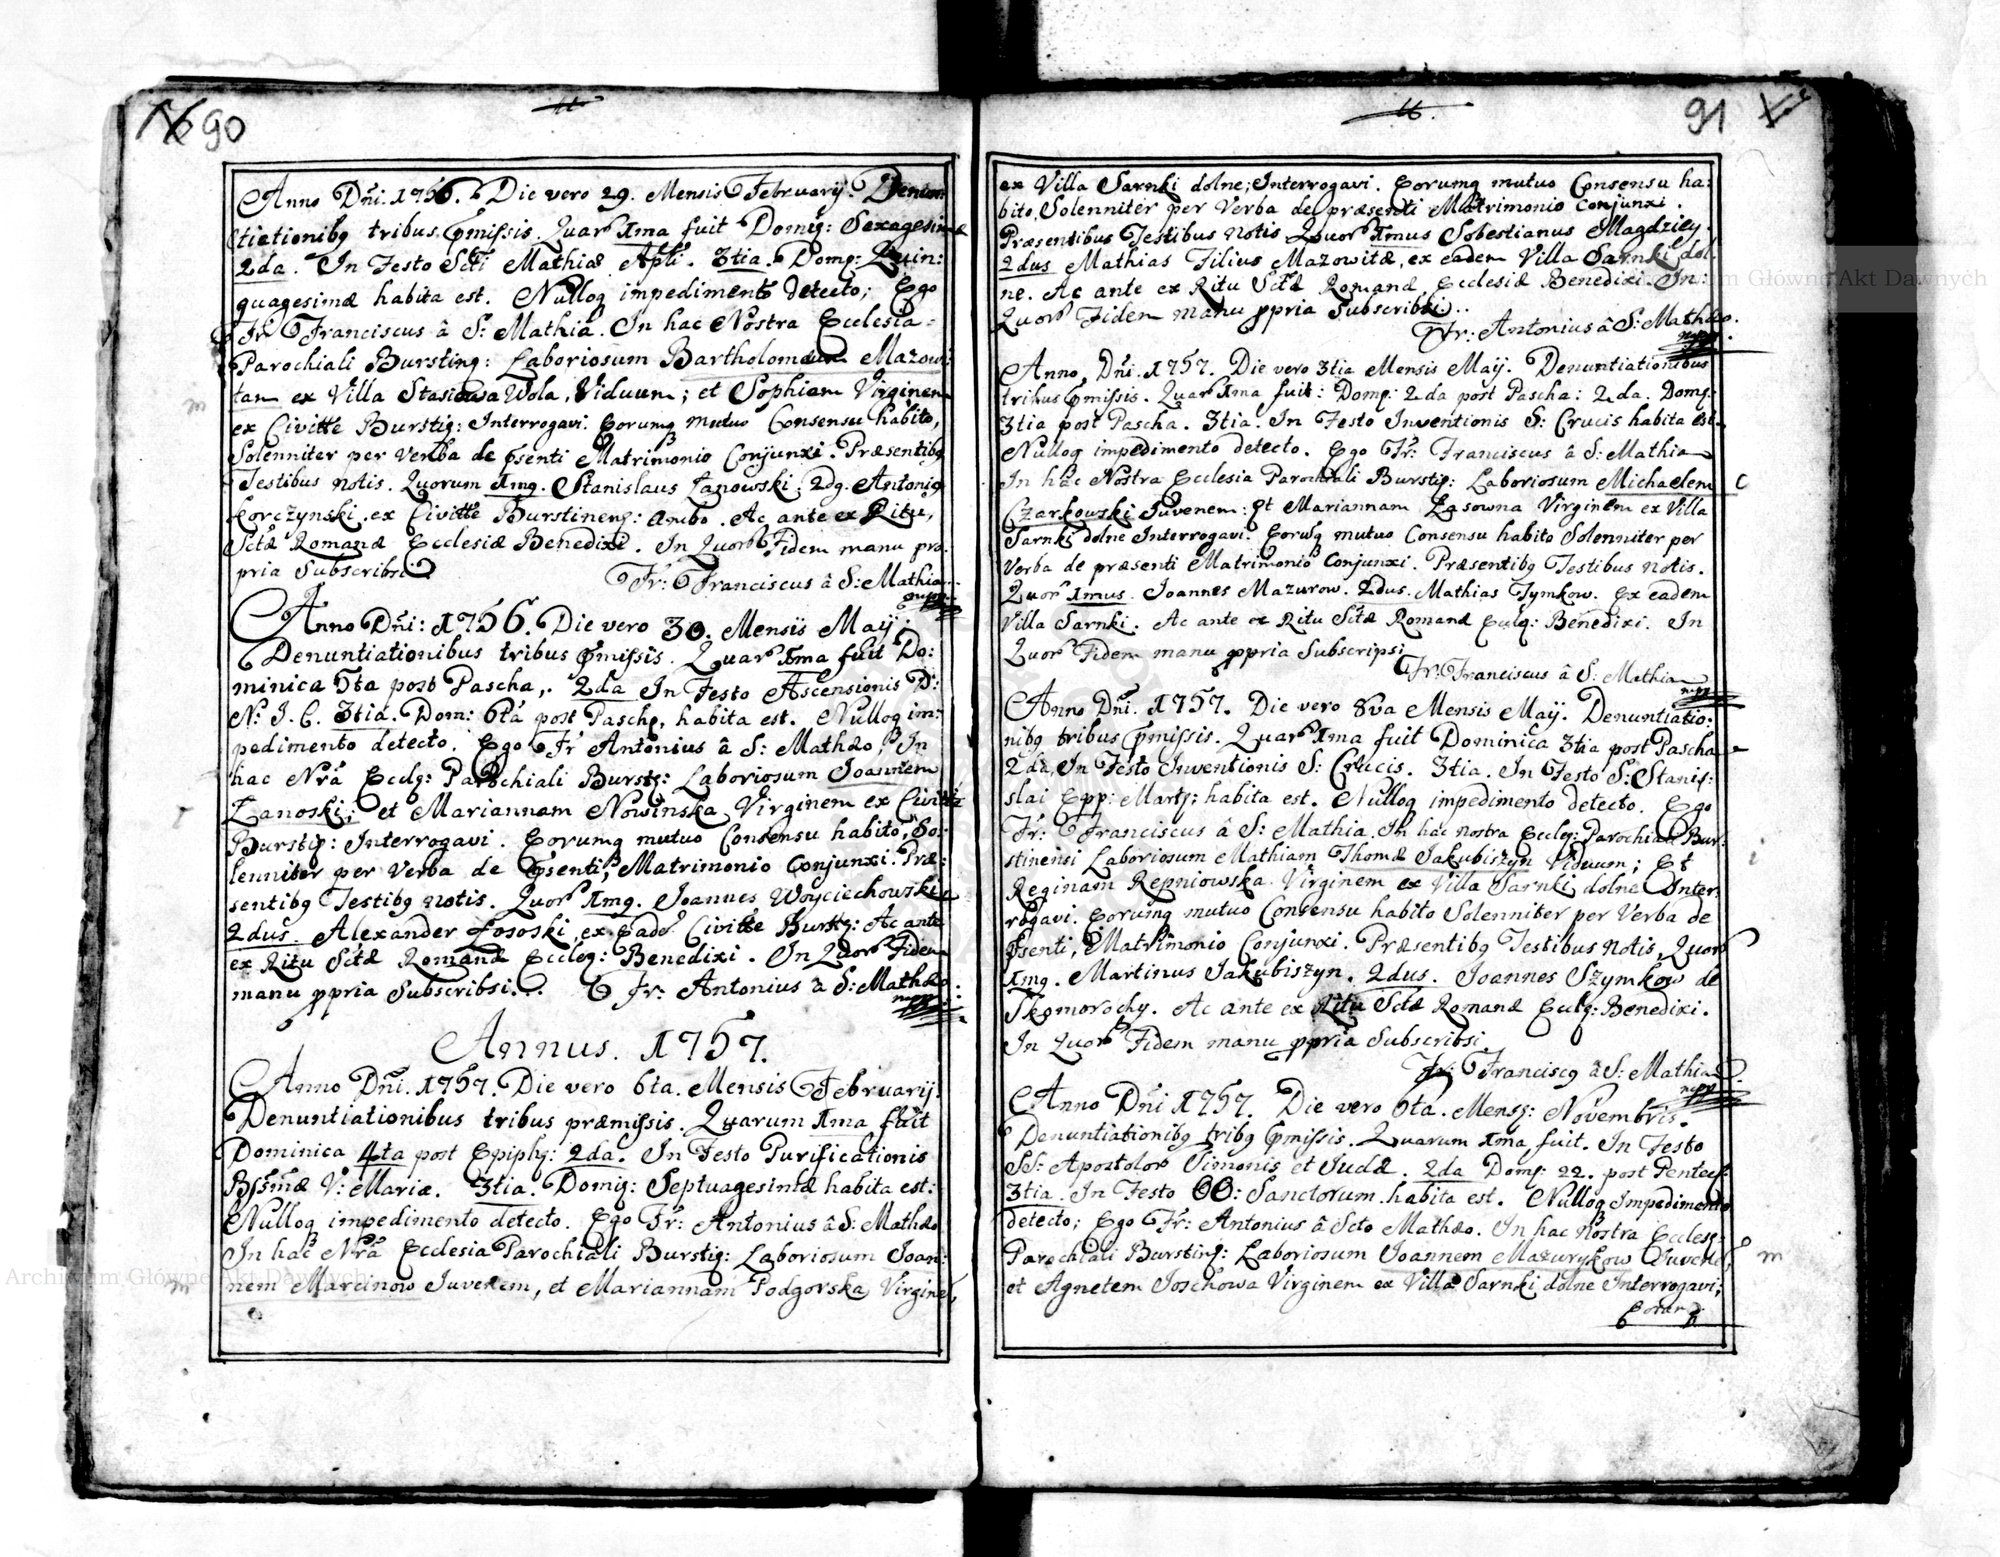 90
Anno Dñi. 1756. Die vero 29. Mensis Februarij. Denun
ctiationibg tribus pmissis. Quar Ima fuit Domig: Sexagesimæ
2da. In Festo Scti Mathiæ Apli. 3tia. Domg: Quin:
quagesimæ habita est. Nulloq impedimento detecto; Ego
Fr: Franciscus â S: Mathia. In hac Nostra Ecclesia
Parochiali Bursting: Laboriosum Bartholomæum Mazowi:
tam ex Villa Stasiowa Wola, Viduum; et Sophiam Virginem
ex Civitte Burstig: Interrogavi. Eorumq mutuo Consensu habito,
Solenniter per Verba de psenti Matrimonio Conjunxi. Præsentibg
Testibus notis. Quorum Img. Stanislaus Łanowski; 2dg. Antonig
Korczynski ex Civitte Burstineng: ambo. Ac ante ex Ritu,
Sctæ Romanæ Ecclesiæ Benedixi. In Quor Fidem manu pro:
pria Subscribsi.
Fr: Franciscus â S: Mathia
mpp
Anno Dñi: 1756. Die vero 30. Mensis Maij.
Denuntiationibus tribus pmissis. Quar Ima fuit Do:
minica 5ta post Pascha,. 2da In Festo Ascensionis D:
N: J. C. 3tia. Dom: 6ta post Pascha, habita est. Nulloq im:
pedimento detecto. Ego Fr Antonius â S: Mathæo, In
hac Nrâ Ecclg: Parochiali Burstg: Laboriosum Joannem
Łanoski; et Mariannam Nowinska Virginem ex Civitte
Burstig: Interrogavi. Eorumq mutuo Consensu habito, So:
lenniter per Verba de psenti, Matrimonio Conjunxi. Præ:
sentibg Testibg notis. Quor Img. Joannes Woyciechowski
2dus. Alexander Łososki, ex Eade Civitte Burstg: Ac ante
ex Ritu Sctæ Romanæ Eccleg: Benedixi. In Quor Fidem
manu ppria Subscribsi.
Fr: Antonius â S: Mathæo.
mpp
Annus. 1757.
Anno Dñi. 1757. Die vero 6ta. Mensis Februarij.
Denuntiationibus tribus præmissis. Quarum Ima fuit
Dominica 4ta post Epiphg: 2da. In Festo Purificationis
Bssmæ V: Mariæ. 3tia. Domig: Septuagesimæ habita est:
Nulloq impedimento detecto. Ego Fr: Antonius â S: Mathæo
In hac Nrâ Ecclesia Parochiali Burstig: Laboriosum Joan:
nem Marcinow Juvenem, et Mariannam Podgorska Virgine,
91
ex Villa Sarnki dolne; Interrogavi. Eorumq mutuo Consensu ha:
bito, Solenniter per Verba de præsenti Matrimonio Conjunxi.
Præsentibus Testibus notis Quor Imus Sobestianus Magdziey.
2dus Mathias Filius Mazowitæ, ex eadem Villa Sarnki dol:
ne. Ac ante ex Ritu Sctæ Romanæ Ecclesiæ Benedixi. In:
Quor Fidem manu ppria Subscribsi..
Fr: Antonius â S: Mathæo.
mpp
Anno Dñi. 1757. Die vero 3tia Mensis Maij. Denuntiationibus
tribus pmissis. Quar Ima fuit: Domg: 2da post Pascha: 2da. Domg:
3tia post Pascha. 3tia. In Festo Inventionis S: Crucis habita est.
Nulloq impedimento detecto. Ego Fr: Franciscus â S: Mathia
In hac Nostra Ecclesia Parochiali Burstig: Laboriosum Michaelem
Czarkowski Juvenem: Et Mariannam Łasowna Virginem ex Villa
Sarnki dolne Interrogavi. Eorumq mutuo Consensu habito Solenniter per
Verba de præsenti Matrimonio Conjunxi. Præsentibg Testibus notis.
Quor Imus. Joannes Mazurow. 2dus. Mathias Tymkow. Ex eadem
Villa Sarnki. Ac ante ex Ritu Sctæ Romanæ Ecclg: Benedixi. In
Quor Fidem manu ppria Subscripsi
Fr: Franciscus â S: Mathia
mpp
Anno Dñi. 1757. Die vero 8va Mensis Maij. Denuntiatio:
nibg tribus pmissis. Quar Ima fuit Dominica 3tia post Pascha
2da, In Festo Inventionis S: Crucis. 3tia. In Festo S: Stanis:
slai Epp: Martg: habita est. Nulloq impedimento detecto. Ego
Fr: Franciscus â S: Mathia. In hac nostra Eccleg: Parochiali Bur:
stinensi Laboriosum Mathiam Thomæ Jakubiszyn Viduum; Et
Reginam Repniowska Virginem ex Villa Sarnki dolne Inter:
rogavi. Eorumq mutuo Consensu habito Solenniter per Verba de
psenti, Matrimonio Conjunxi. Præsentibg Testibus notis, Quor
Img. Martinus Jakubiszyn. 2dus. Joannes Szymkow de
Skomorochy. Ac ante ex Ritu Sctæ Romanæ Ecclg: Benedixi.
In Quor Fidem manu ppria Subscribsi
Fr: Franciscg â S: Mathia
mpp
Anno Dñi 1757. Die vero 6ta. Mensg: Novembris.
Denuntiationibg tribg pmissis. Quarum Ima, fuit. In Festo
SS: Apostolor Simonis et Judæ. 2da Domg: 22. post Pentec:
3tia. In Festo OO: Sanctorum habita est. Nulloq Impedimento
detecto; Ego Fr: Antonius â Scto Mathæo. In hac Nostra Ecclesg:
Parochiali Bursting: Laboriosum Joannem Mazurykow Juvenē,
et Agnetem Joschowa Virginem ex Villa Sarnki dolne Interrogavi;
Eorum
Archiwum Główne Akt Dawnych
Archiwum Główne Akt Dawnych